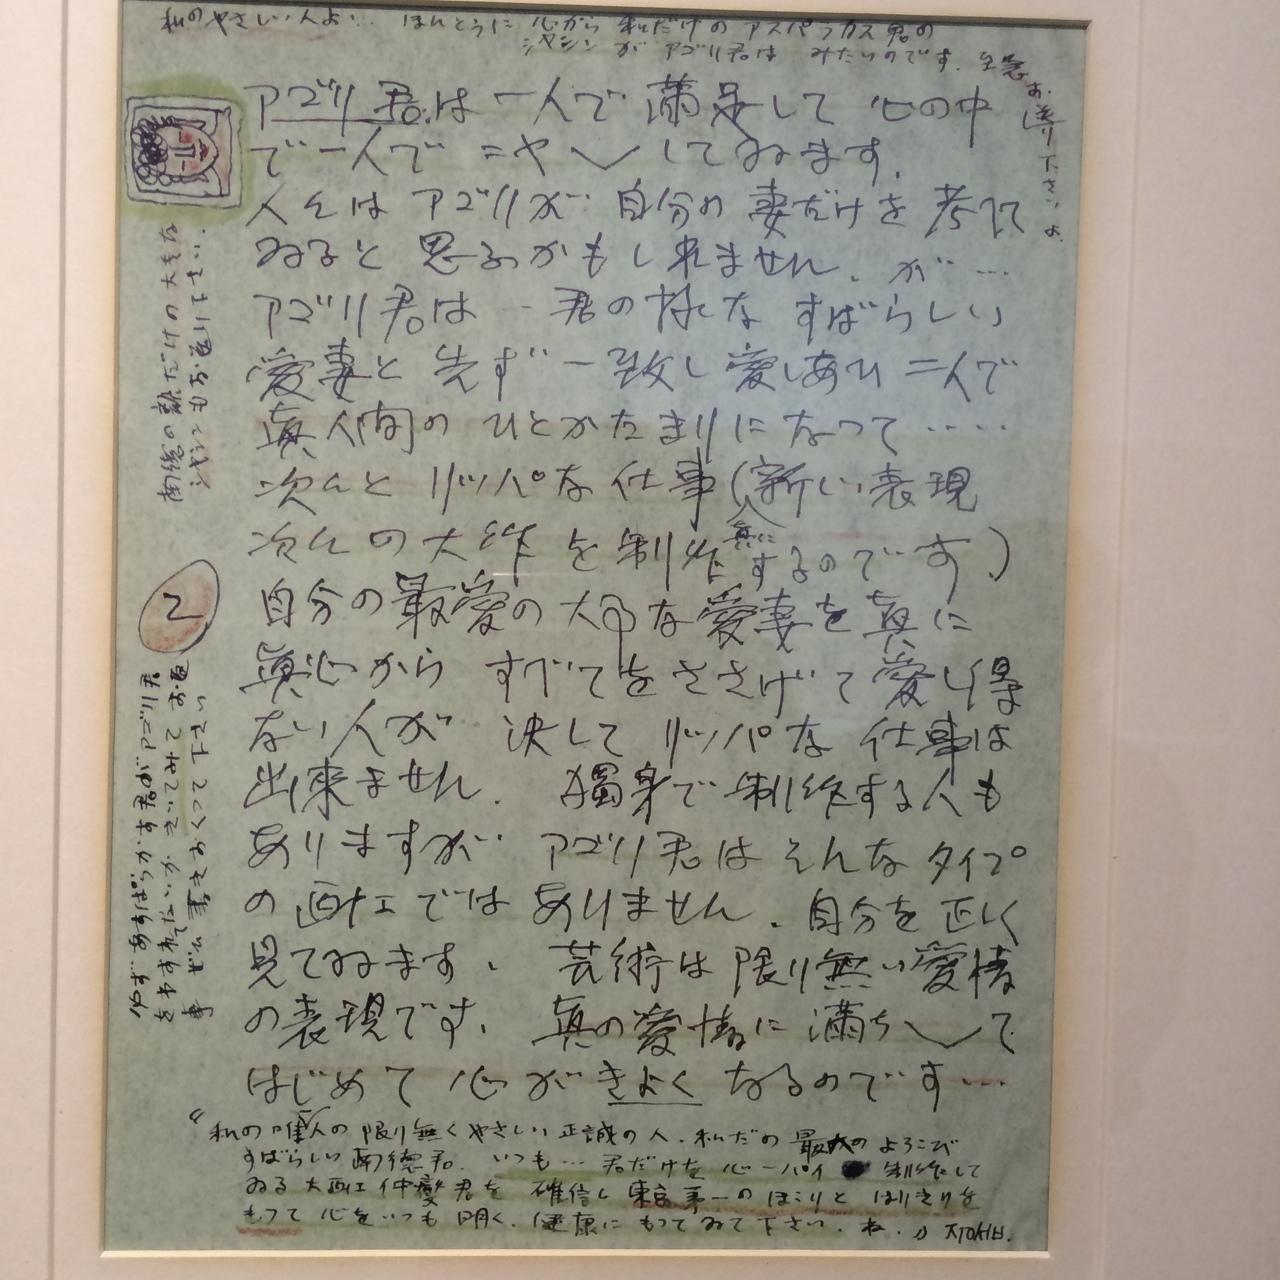 私のやさしい人よ… ほんとうに 心から 私だけの アスパラガス君の
シヤシン が アゴリ君は みたいのです. 至急
お送り下さいよ.
アゴリ君は 一人で 満足して 心の中
で 一人で ニヤ〜 してゐます.
人々は アゴリが 自分の 妻だけを 考えて
ゐると 思ふかもし れません. が…
アゴリ君は … 君の様な すばらしい
愛妻と 先ず 一致し 愛しあひ 二人で
真人間の ひとかたまりになって ‥‥
次々と リッパな 仕事 (新しい 表現
次々の大作を 制作 真に するのです)
自分の最愛の 大切な 愛妻を 真に
真心から すべてをささげて 愛し得
ない人が 決して リッパな 仕事は
出来ません. 独身で 制作する人も
ありますが アゴリ君は そんな タイプ
の画工では ありません. 自分を正しく
見てゐます. 芸術は 限り無い 愛情
の表現です. 真の愛情に 満ち〜て
はじめて 心が きよく なるのです…
“私の唯一人の 限り無く やさしい 正誠の人. 私だの 最大の よろこび
すばらしい 南徳君. いつも… 君だけを 心一パイ 制作して
ゐる 大画工 仲燮君を 確信し 東京第一の ほこりと はりきりを
もつて 心を いつも 明く. 健康に もつてゐて下さい. ね.
南徳の 顔だけの 大きな
シヤシンもお送り下さい.
2